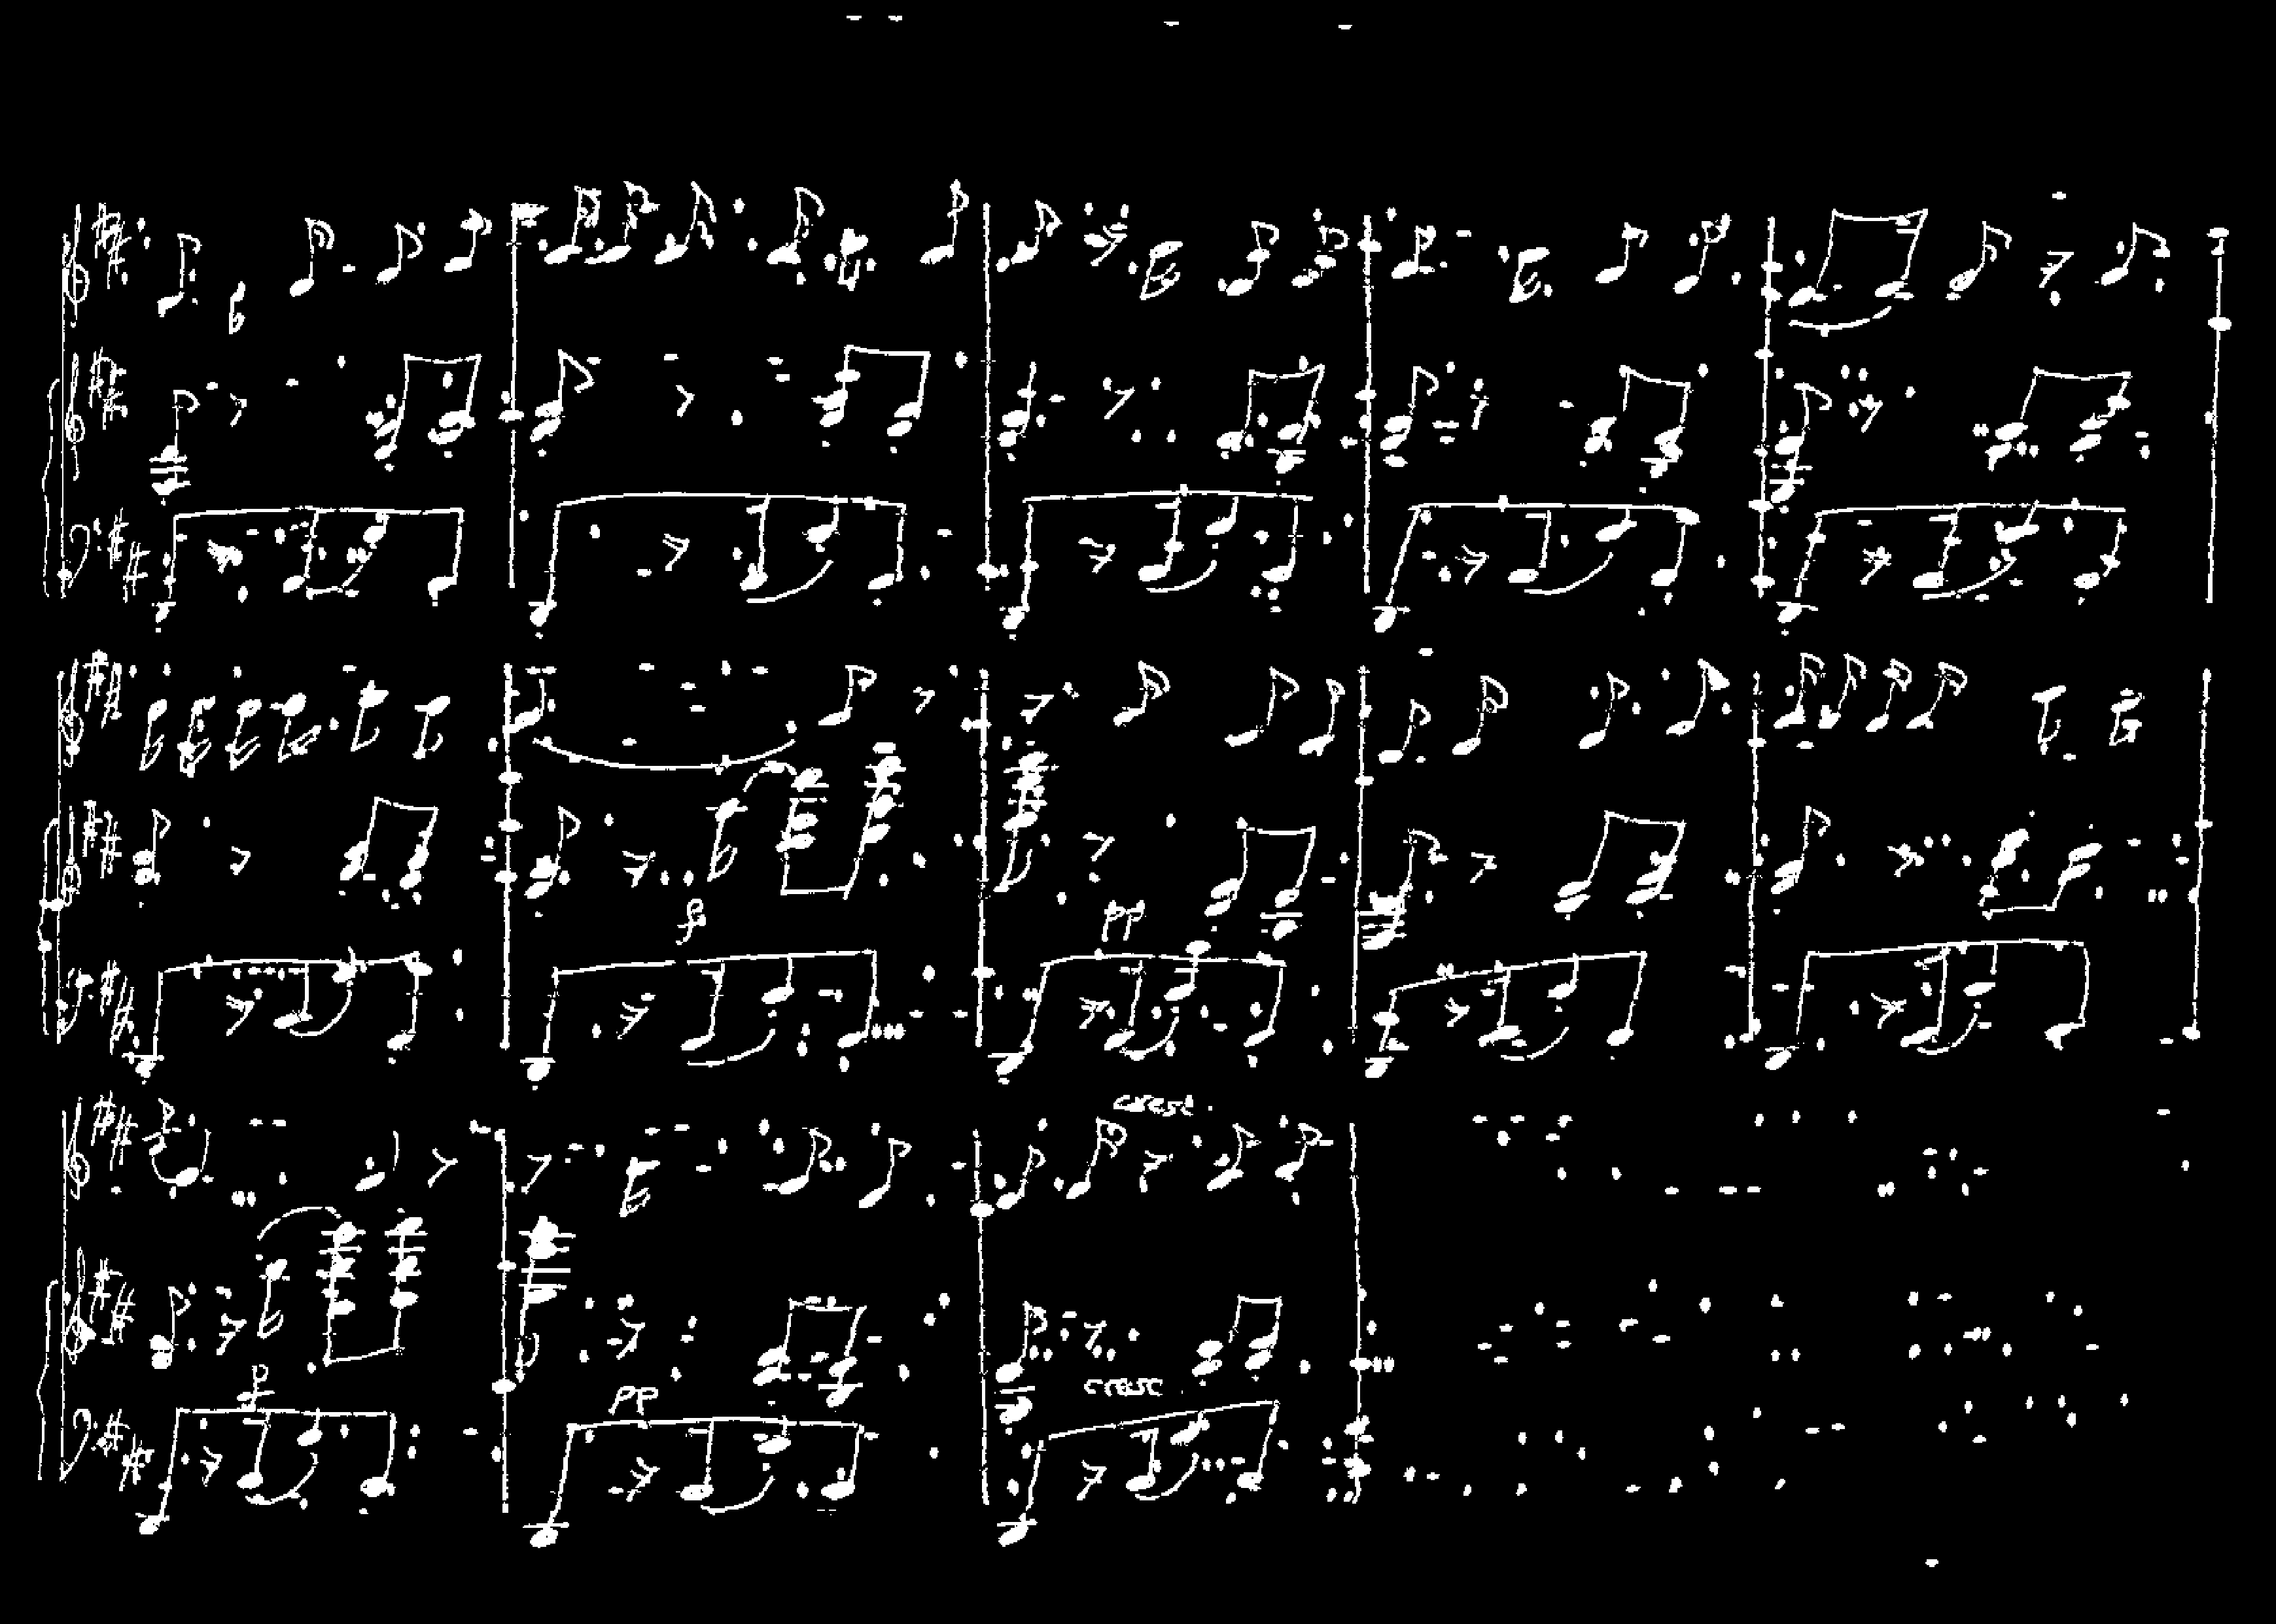 f
pp
cresc.
p
pp
cresc.